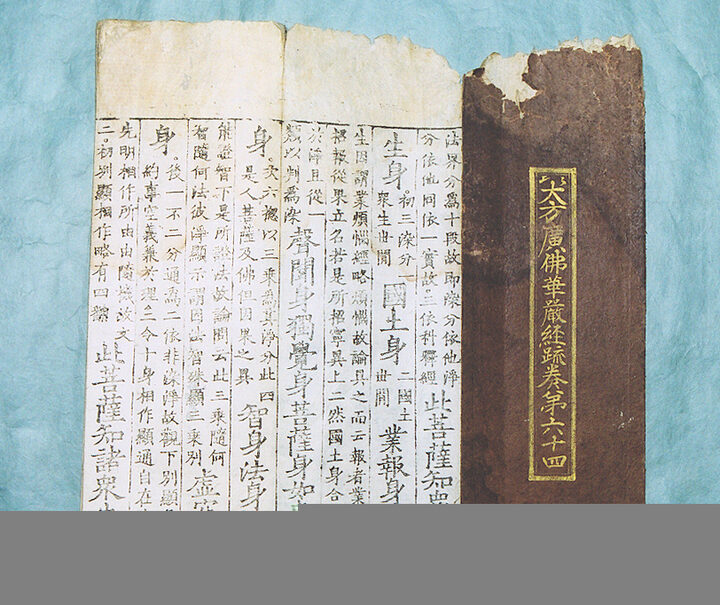 大方廣佛華嚴経䟽卷第六十四
法界分爲十段故即染分依他淨
分依他同依一實故二依科釋經
此菩薩知衆
生身
初三染分一
衆生世間
國土身
二國土
世間
業報身
生因謂業煩惱經略煩惱故論具之而云報者業
招報從果立名若是所招寧異上二然國土身合
於淨且從一
類以判爲染
聲聞身獨覺身菩薩身如
身
次六攝以三乘爲其淨分此四
是人菩薩及佛但因果之異
智身法身
能證智下是所證法故論云此三乘隨何
智隨何法彼淨顯示謂因法智殊顯三乘別
虛空
身
後一不二分通爲二依非染淨故觀下別顯
約事空義兼於理二令十身相作顯通自在
先明相作所由由隨機故文
二初別顯相作略有四類
此菩薩知諸衆生